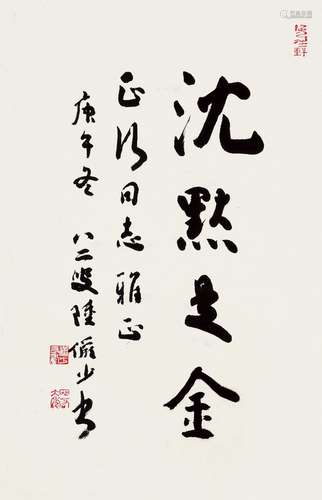 沈默是金
正行同志雅正
庚午冬 八二叟陸儼少書